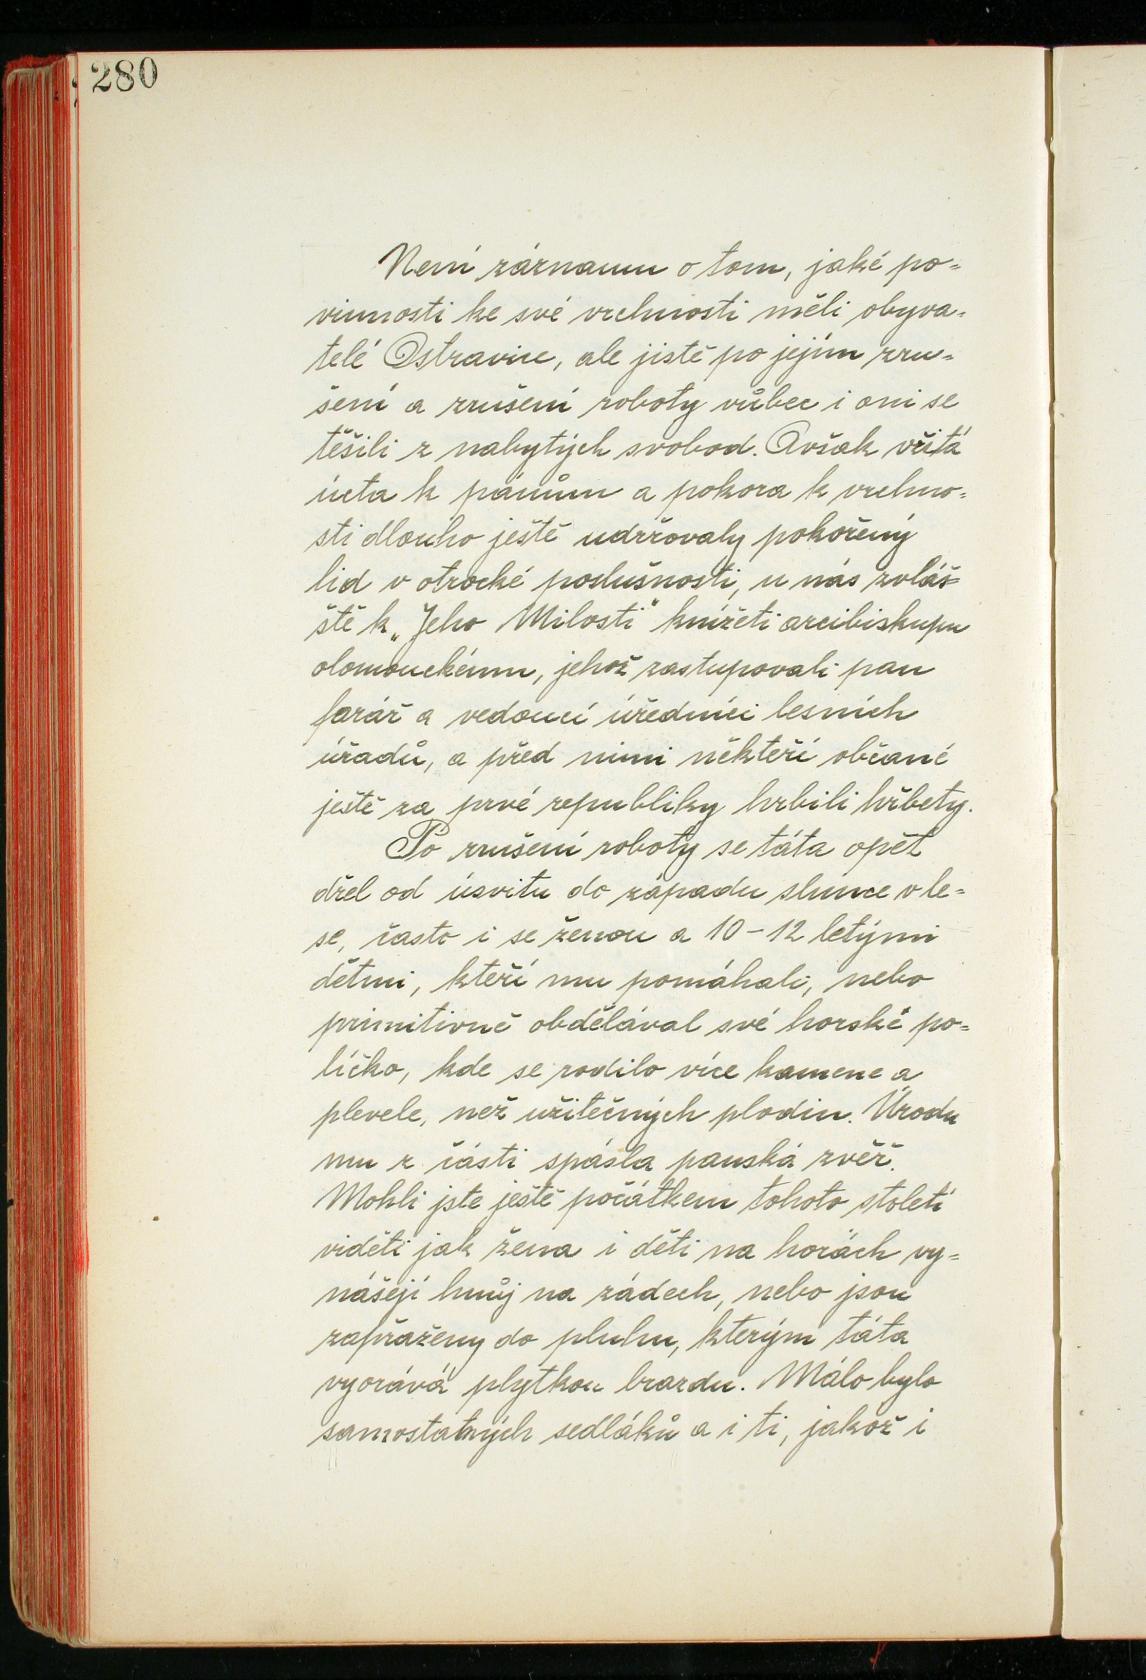 280
Není záznamu o tom, jaké po=
vinnosti ke své vrchnosti měli obyva=
telé Ostravice, ale jistě po jejím zru=
šení a zrušení roboty vůbec i oni se
těšili z nabytých svobod. Avšak vžitá
úcta k pánům a pokora k vrchno=
sti dlouho ještě udržovaly pokořený
lid v otrocké poslušnosti, u nás zvláš=
ště k „Jeho Milosti" knížeti arcibiskupu
olomouckému, jehož zastupovali pan
farář a vedoucí úředníci lesních
úřadů, a před nimi někteří občané
ještě za prvé republiky hrbili hřbety.
Po zrušení roboty se táta opět
dřel od úsvitu do západu slunce v le=
se, často i se ženou a 10-12 letými
dětmi, kteří mu pomáhali, nebo
primitivně obdělával své horské po=
líčko, kde se rodilo více kamene a
plevele, než užitečných plodin. Úrodu
mu z části spásla panská zvěř.
Mohli jste ještě počátkem tohoto století
viděti jak žena i děti na horách vy=
nášejí hnůj na zádech, nebo jsou
zapřaženy do pluhu, kterým táta
vyorává plytkou brazdu. Málo bylo
samostatných sedláků a i ti, jakož i